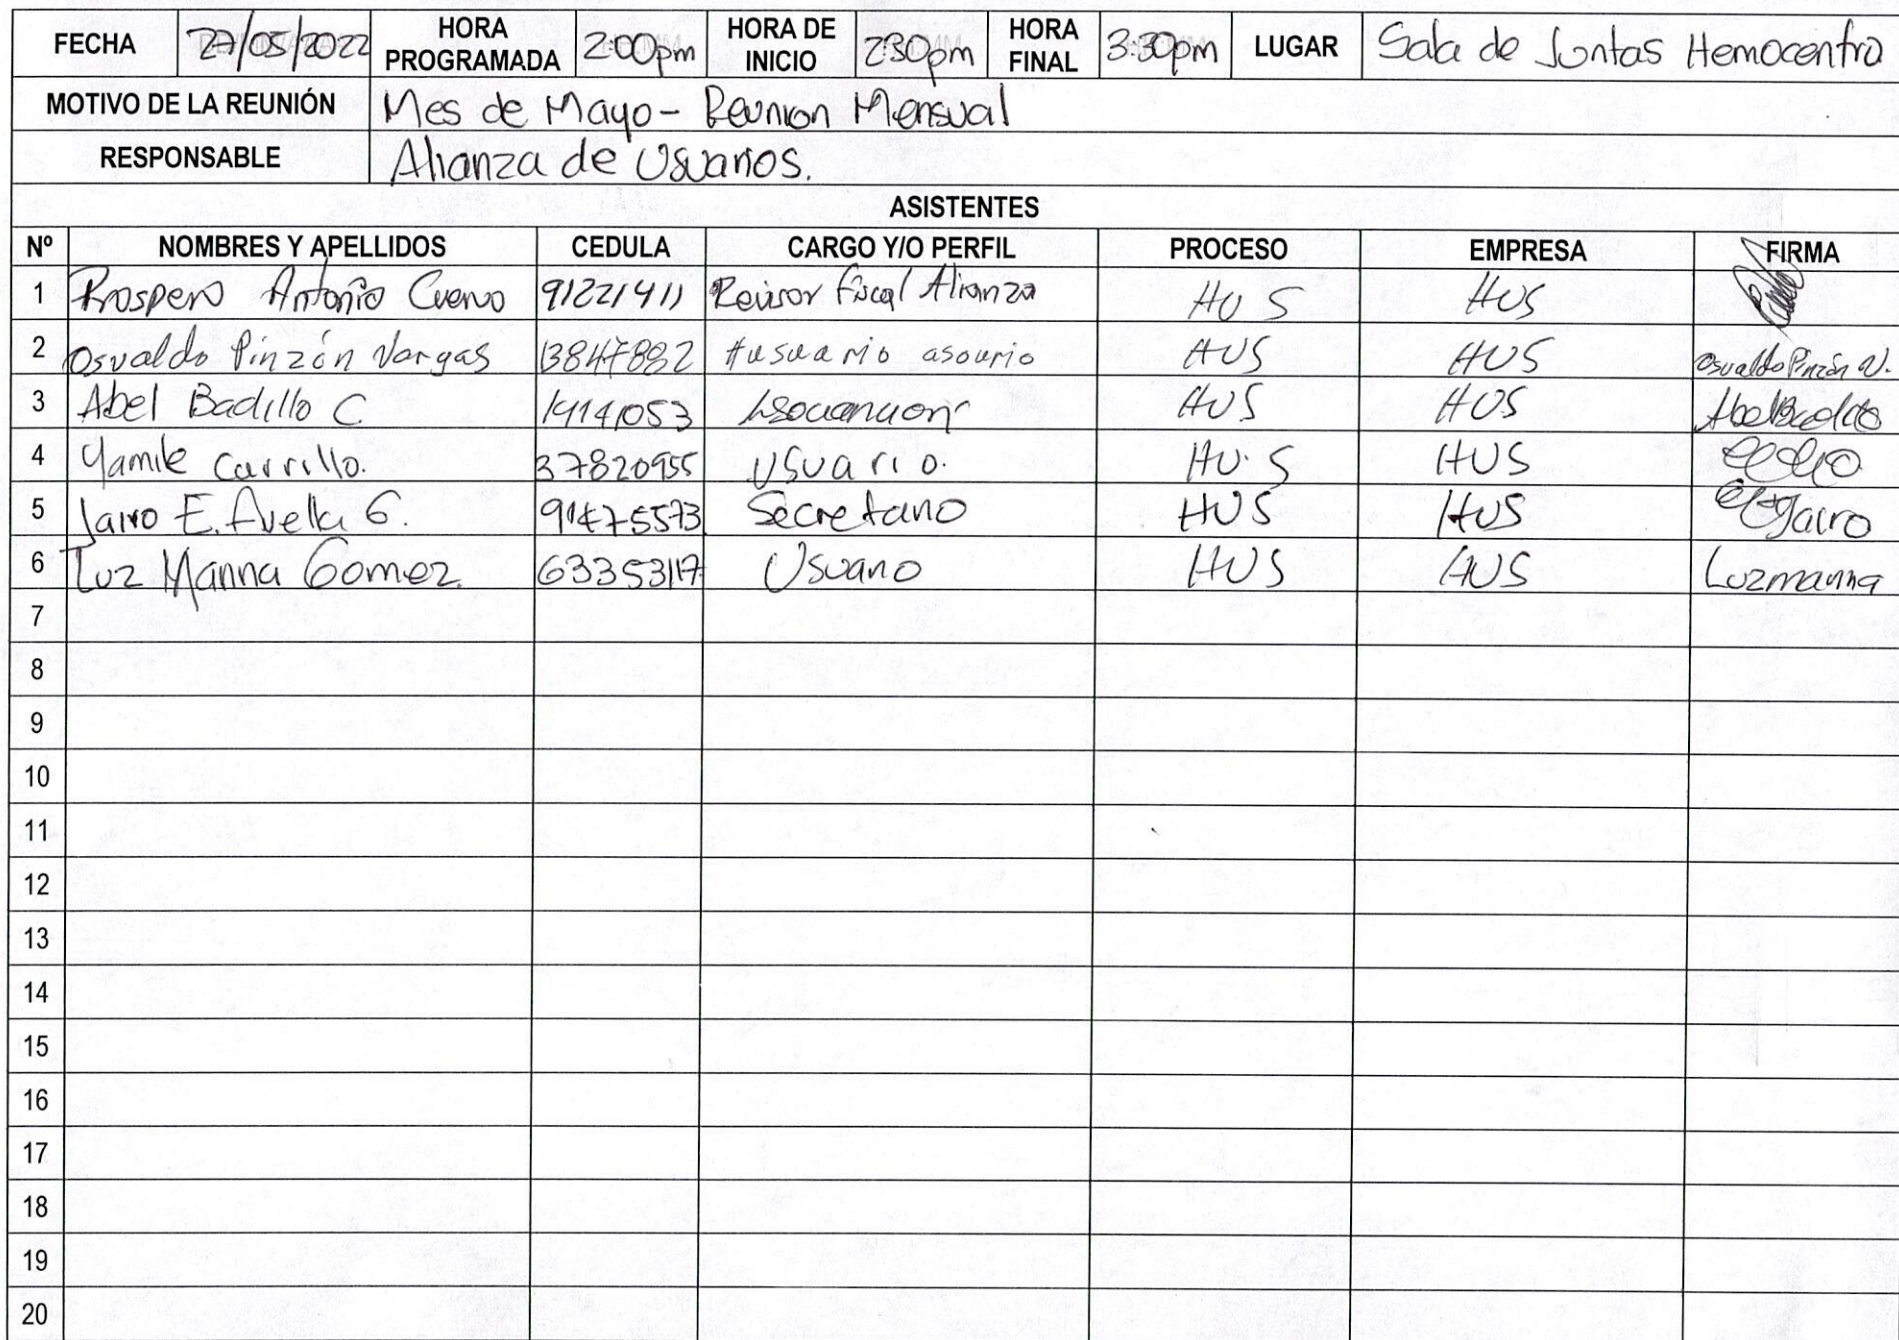 FECHA 27/05/2022 HORA PROGRAMADA 2:00pm HORA DE INICIO 2:30pm HORA FINAL 3:30pm LUGAR Sala de Juntas Hemocentro
MOTIVO DE LA REUNIÓN Mes de Mayo - Reunion Mensual
RESPONSABLE Alianza de Usuarios.
ASISTENTES
Nº NOMBRES Y APELLIDOS CEDULA CARGO Y/O PERFIL PROCESO EMPRESA FIRMA
1 Prospero Antonio Cuervo 91221411 Revisor fiscal Alianza HUS HUS
2 Osvaldo Pinzón Vargas 13847882 Husuario HUS HUS Osvaldo Pinzón V.
3 Abel Badillo C. HUS HUS Abel Badillo
4 Yamile Carrillo. 37820955 Usuario. HU.S HUS
5 Jairo E. Avella G. 91475573 Secretario HUS HUS Jairo
6 Luz Marina Gomez. 63353117 Usuario HUS HUS Luzmarina
7
8
9
10
11
12
13
14
15
16
17
18
19
20